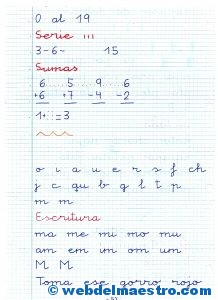 0 al 19
Serie III
3-6- 15
Sumas
6 5 9 6
+6 +7 -4 -2
1+ =3
o i a u e r s f ch
j c qu b g l t p
m m
Escritura
ma me mi mo mu
am em im om um
M M
Toma ese gorro rojo
© webdelmaestro.com